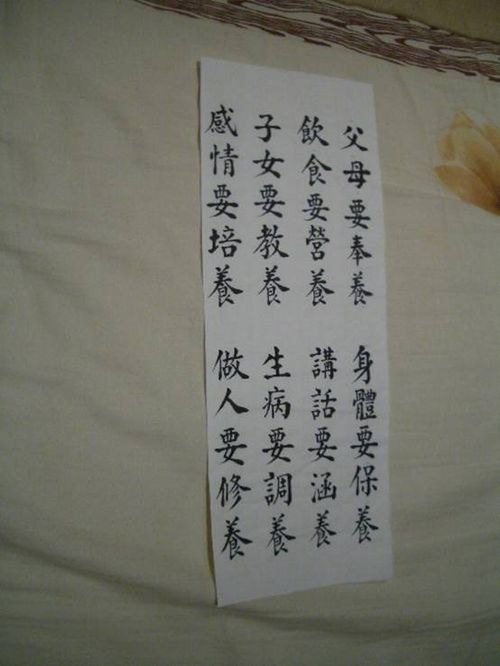 父母要奉養
身體要保養
飲食要營養
講話要涵養
子女要教養
生病要調養
感情要培養
做人要修養